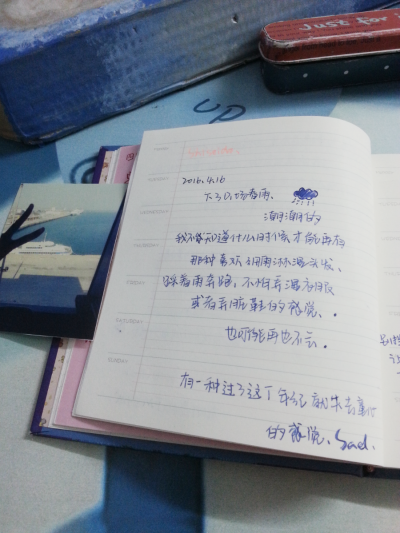 Just for
UP
2016.4.16
下了几场春雨、
潮潮的
我不知道什么时候才能再有
那种喜欢让雨淋湿头发、
踩着雨奔跑，不怕弄湿衣服
或者弄脏鞋的感觉、.
也可能再也不会.
有一种过了这个年纪就失去
的感觉、Sad.